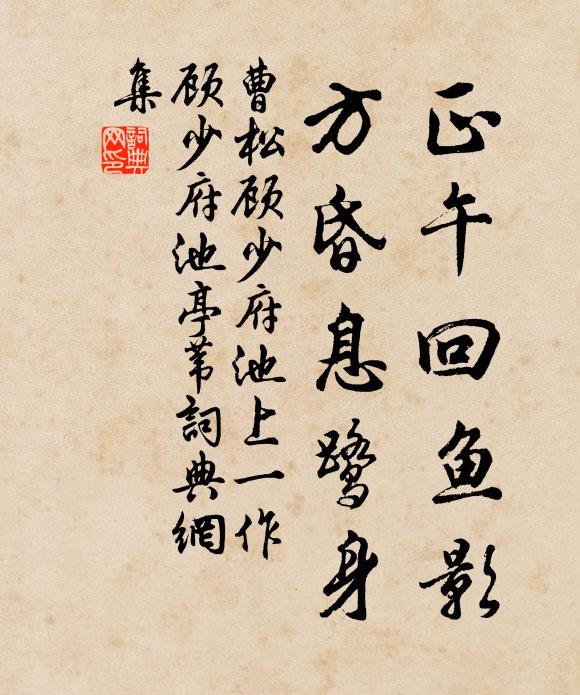 正午回鱼影
方昏息鹭身
曹松顾少府池上一作
顾少府池亭苇詞典網
集
詞典
网印